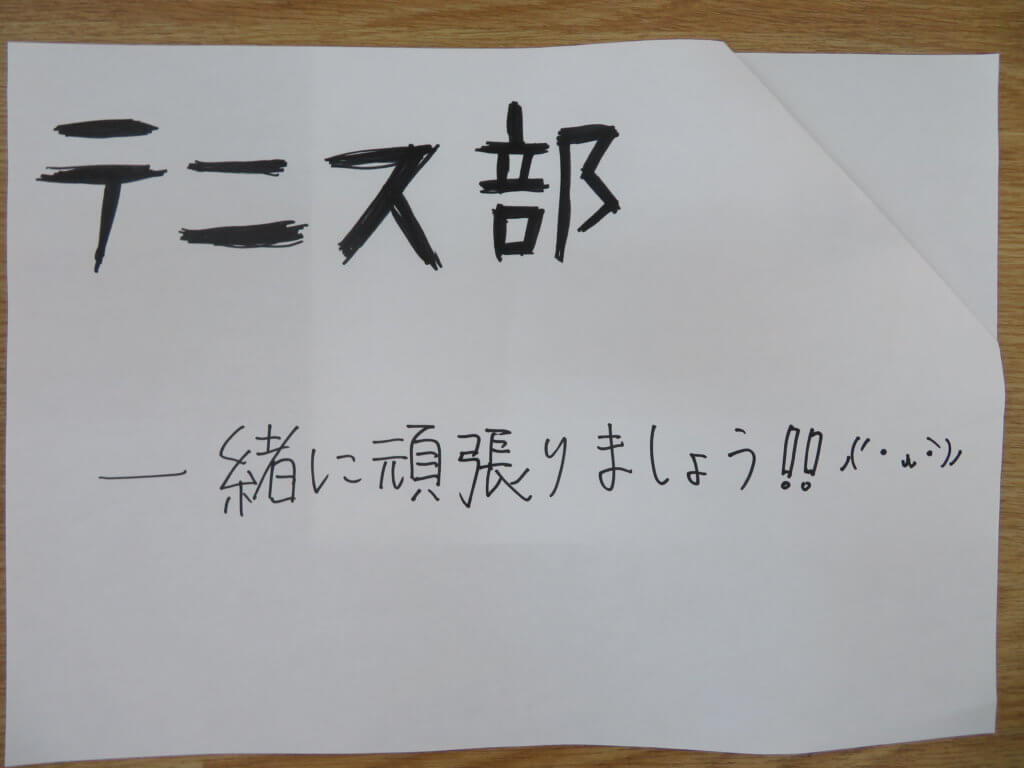 テニス部
一緒に頑張りましょう!! ٩(´・ᴗ・`)و